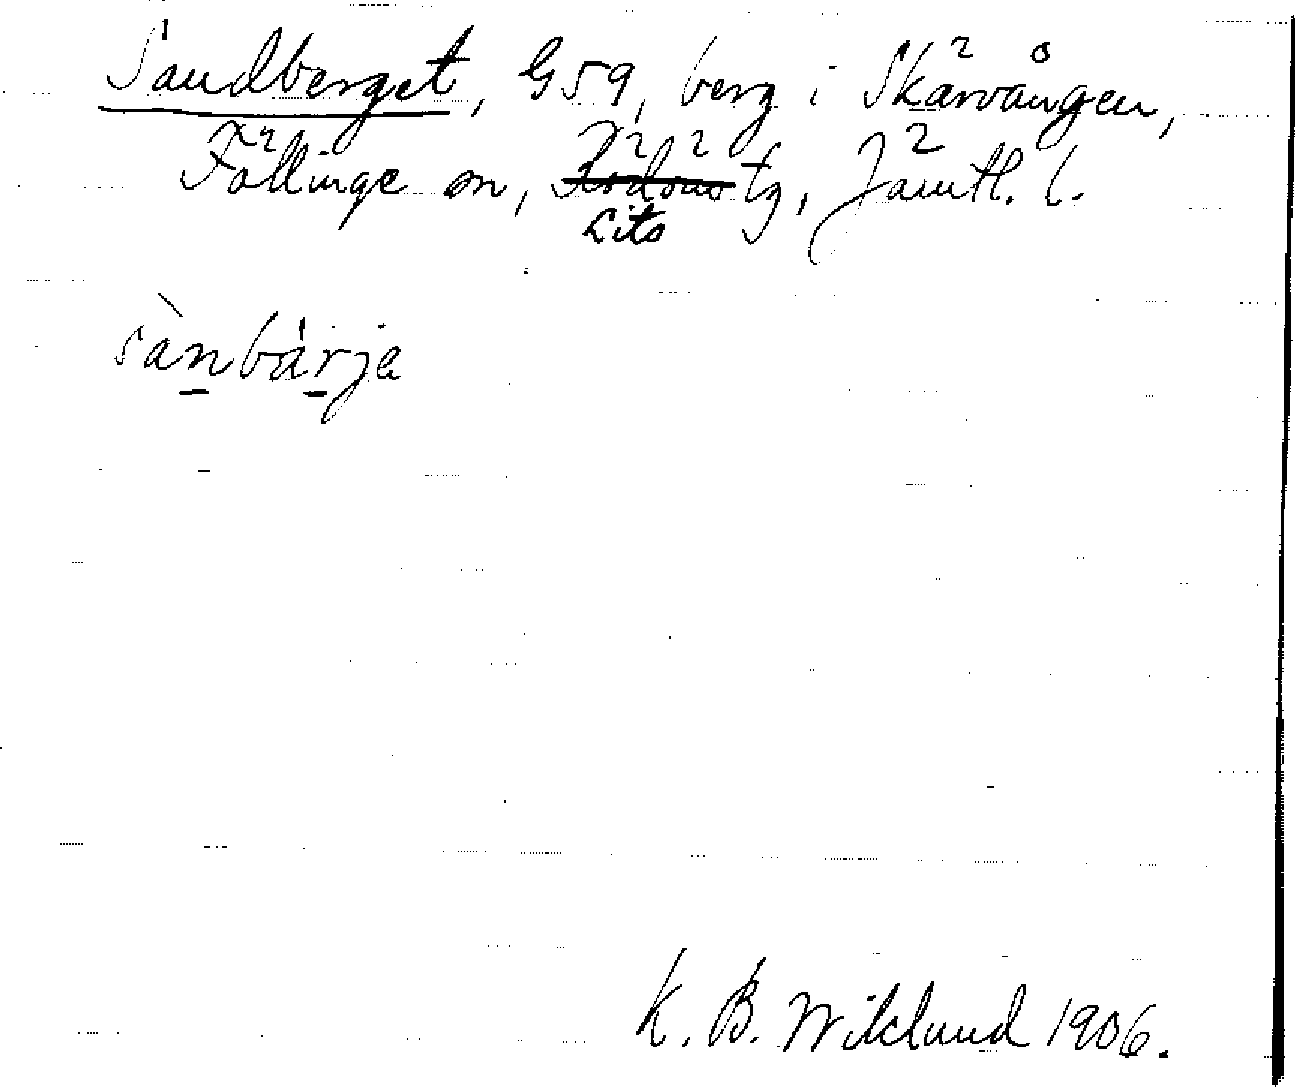 Sandberget, G59, berg i Skärvången,
Föllinge sn, Rödöns tg, Jämtl. l.
Lits
sànbárje
K. B. Wiklund 1906.